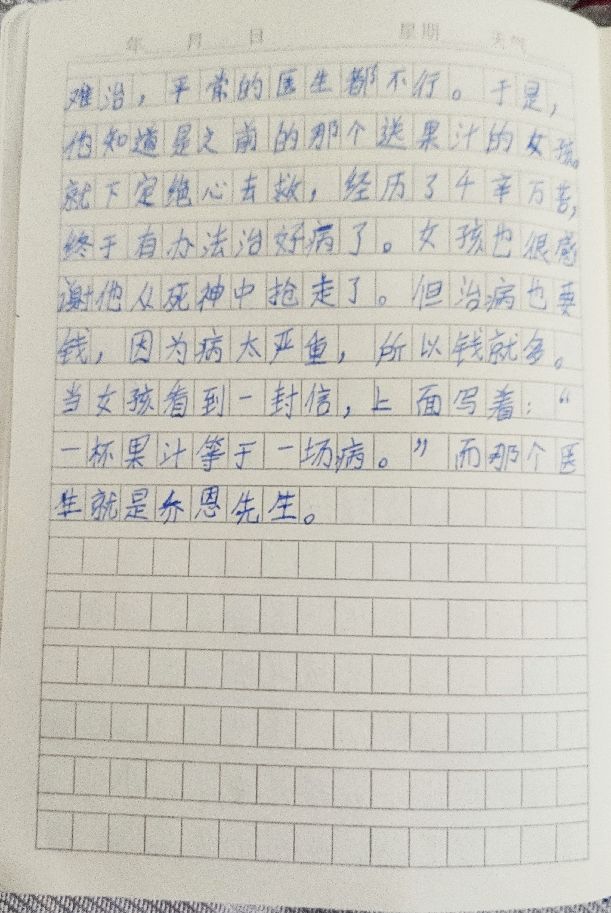 年 月 日 星期 天气
难治，平常的医生都不行。于是，
他知道是之前的那个送果汁的女孩。
就下定绝心去救，经历了千辛万苦，
终于有办法治好病了。女孩也很感
谢他从死神中抢走了。但治病也要
钱，因为病太严重，所以钱就多。
当女孩看到一封信，上面写着：“
一杯果汁等于一场病。”而那个医
生就是乔恩先生。